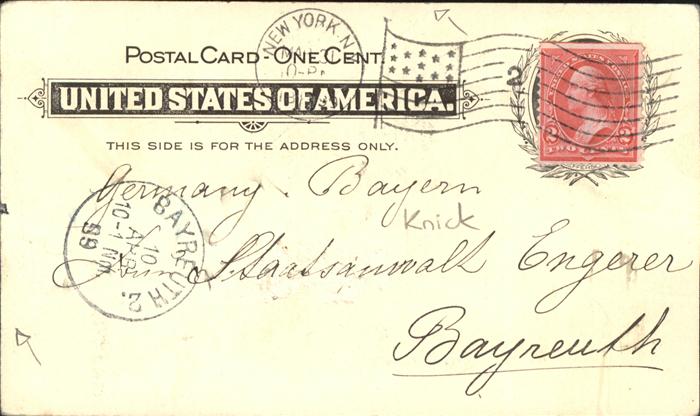 NEW YORK. N.
POSTAL CARD - ONE CENT
2
UNITED STATES OF AMERICA.
THIS SIDE IS FOR THE ADDRESS ONLY.
2 2
TWO CENTS
Germany. Bayern
Knick
BAYREUTH 2.
10
APR
10-11 NM
99
Staatsanwalt Engerer
Bayreuth